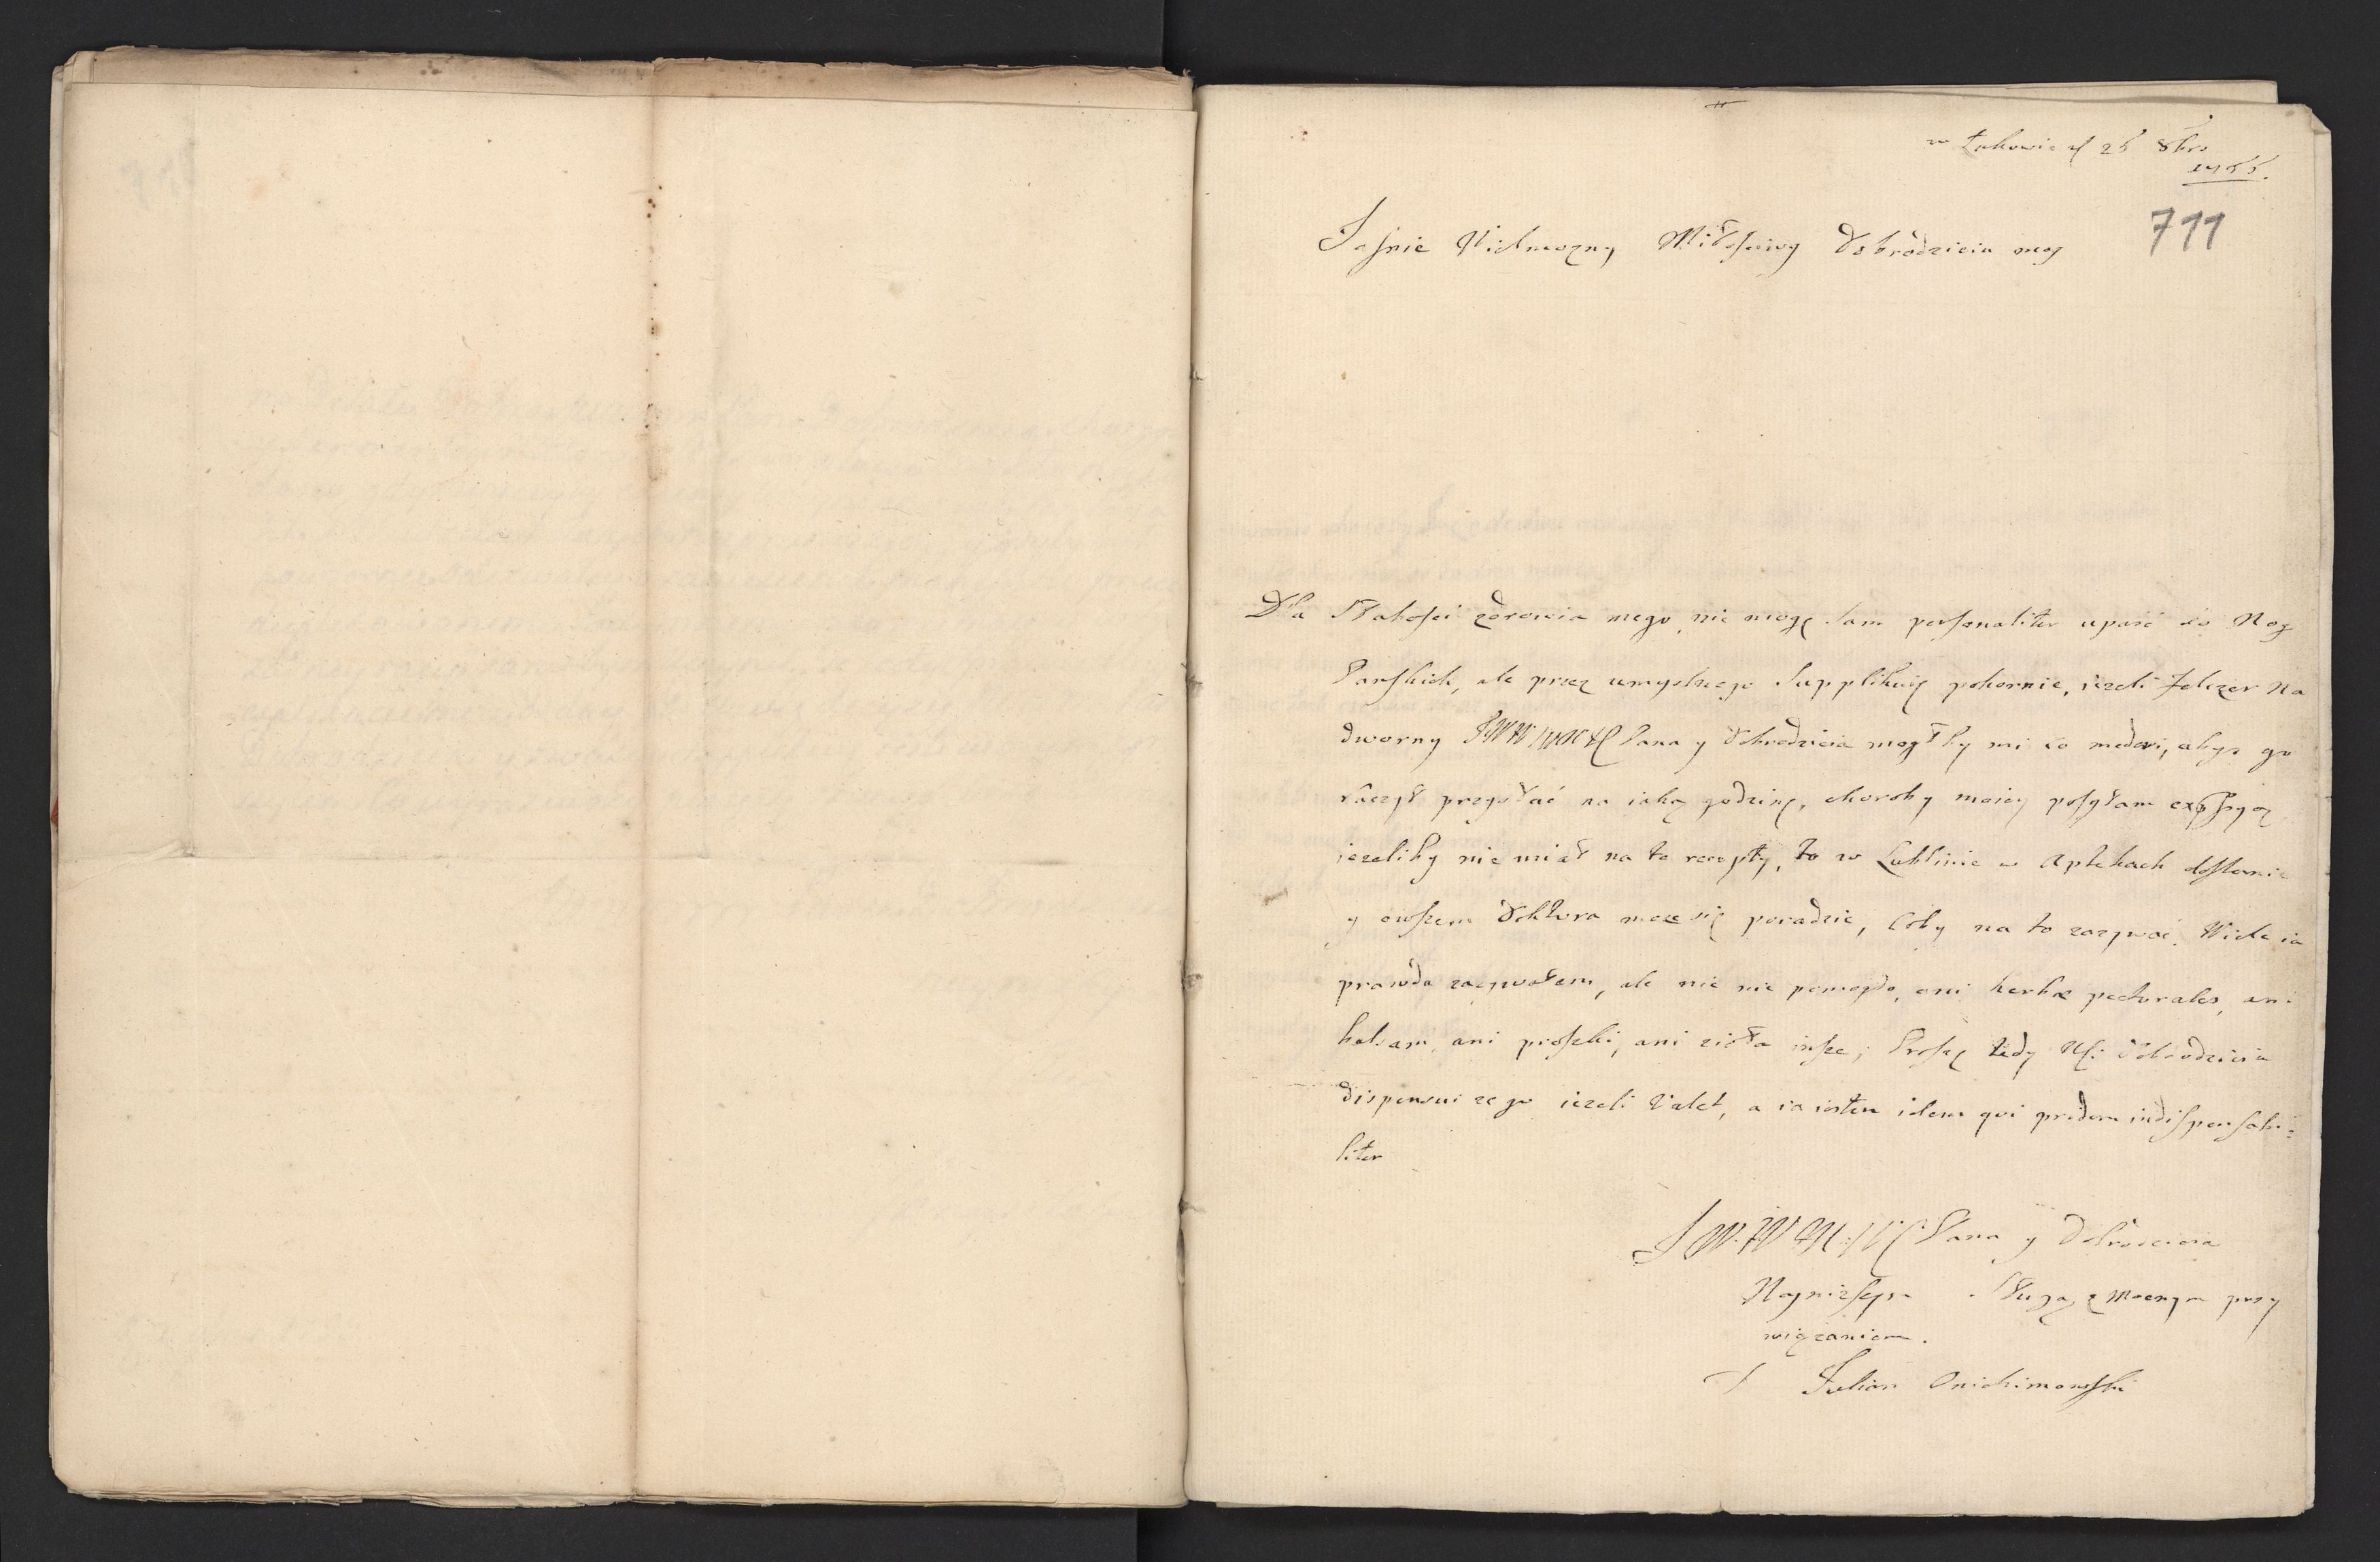 w Łukowie d 25 8bra
1755.
711
Jaśnie Wielmożny Miłościwy Dobrodzieiu moy
Dla słabości zdrowia mego nie mogę sam personaliter upaść do Nog
Pańskich, ale przez umyślnego supplikuię pokornie, ieżeli Felczer Na
dworny Pana y Dobrodzieia mogłby mi co mederi, abyś go
raczył przysłać na iaką godzinę, choroby moiey posyłam
ieżeliby nie miał na to recepty, to w Lublinie w Aptekach dostanie
y owszem Doktora może się poradzić, coby na to zazywać. Wiele ia
prawda zazywałem, ale nic nie pomogło, ani herbæ pectorales, ani
balsam, ani proszki, ani zioła insze; Proszę tedy Dobrodzieia
ieżeli valet, a ia iestem idem qui pridem indispensabi=
liter
Pana y Dobrodzieia
Nayniższym sługą z mocnym przy
wiązaniem.
Julian Onichimowski